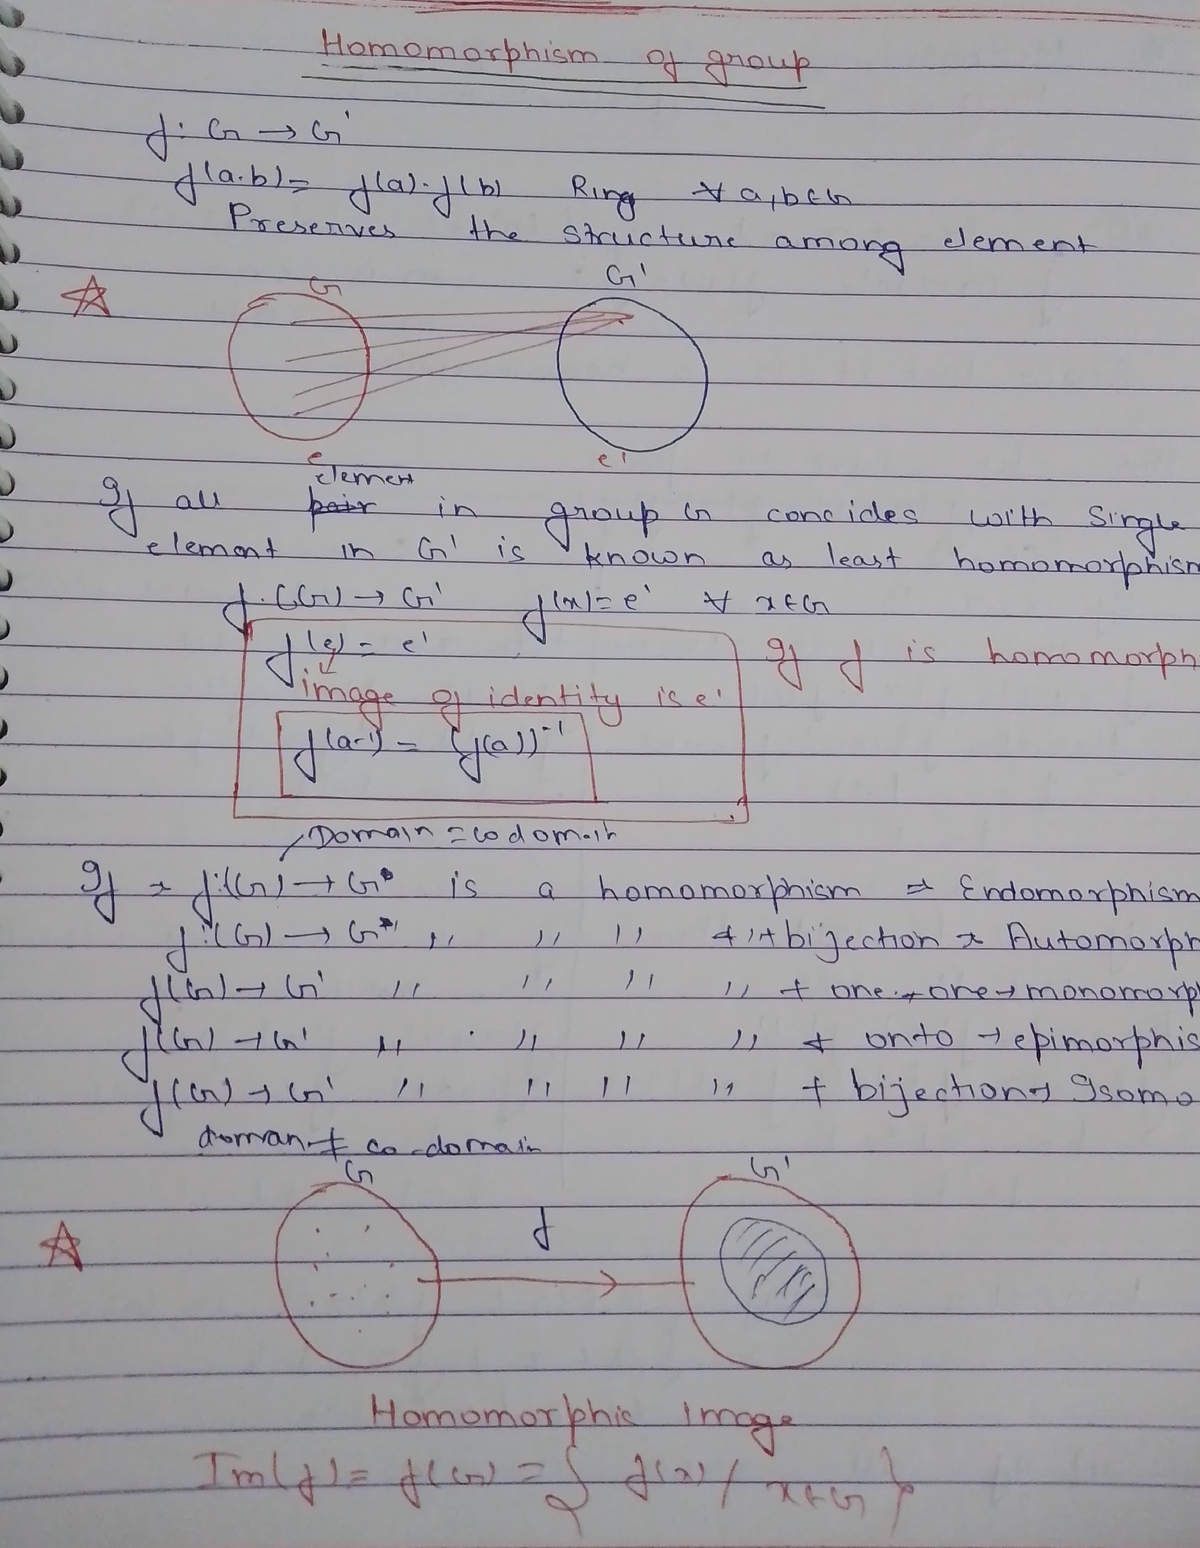 Homomorphism of group
f: G → G'
f(a.b) = f(a).f(b) Ring ∀ a,b ∈ G
Preserves the structure among element
G G'
e e'
element
If all pair in group G concides with single
element in G' is known as least homomorphism
f.(G) → G' f(x) = e' ∀ x ∈ G
f(e) = e' If f is homomorph
image of identity is e'
f(a-1) = (f(a))⁻¹
Domain = codomain
If f:(G) → G is a homomorphism ⇒ Endomorphism
f:(G) → G ,, ,, ,, + bijection Automorph
f(G) → G' ,, ,, ,, ,, + one-one → monomorp
f(G) → G' ,, ,, ,, ,, + onto → epimorphis
f(G) → G' ,, ,, ,, ,, + bijection → Isomo
doman ≠ co-domain
G f G'
Homomorphic Image
Im(f) = f(G) = { f(x) / x ∈ G }